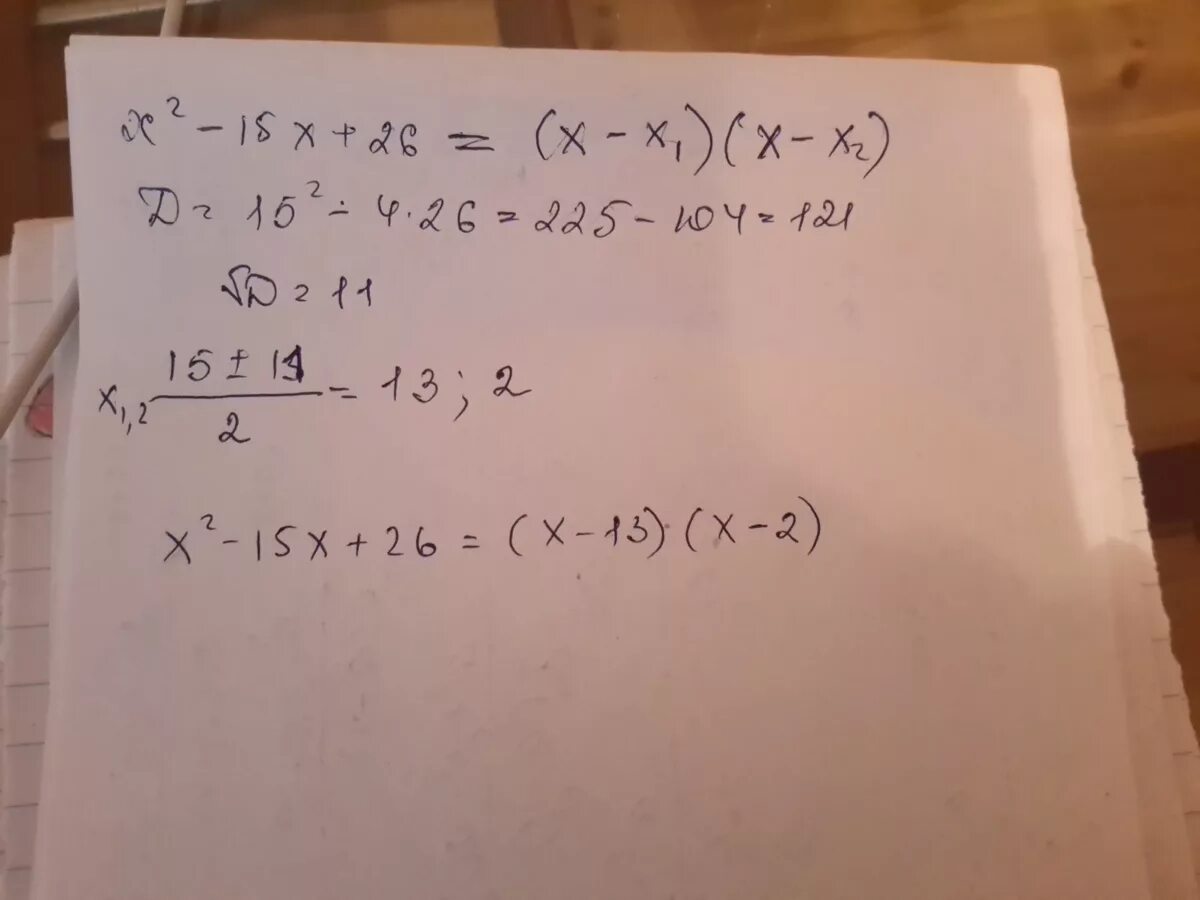 x² - 15x + 26 = (x - x₁)(x - x₂)
D = 15² - 4·26 = 225 - 104 = 121
√D = 11
x₁,₂ (15 ± 11)/2 = 13; 2
x² - 15x + 26 = (x - 13)(x - 2)